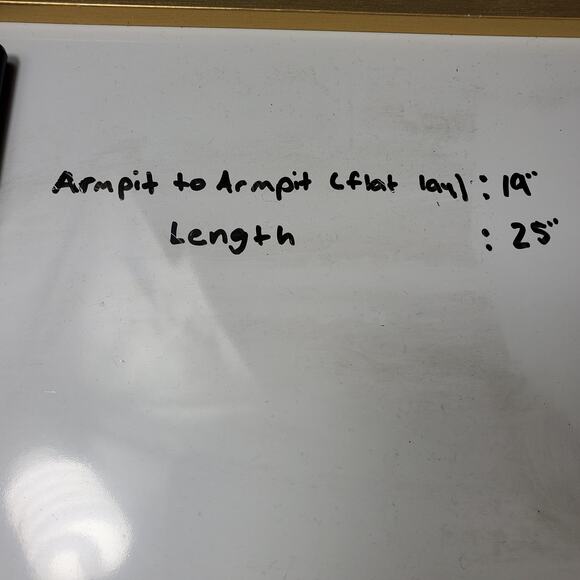 Armpit to Armpit (flat lay) : 19"
Length : 25"